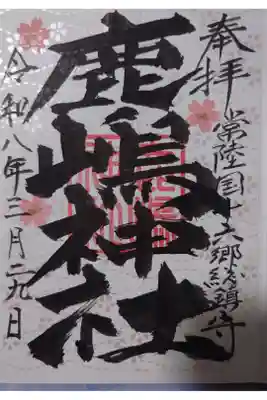 奉拝
常陸国十六郷総鎮守
鹿嶋神社
令和八年三月二九日